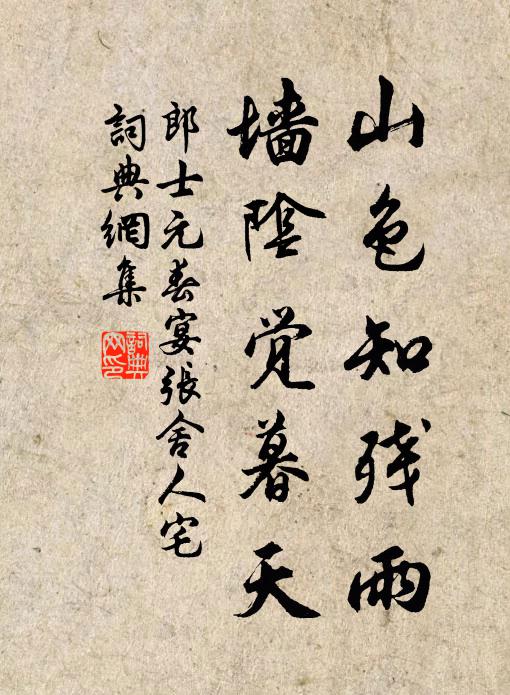 山色知残雨
墙陰覚暮天
郎士元春宴張舍人宅
詞典網集
詞典
网印